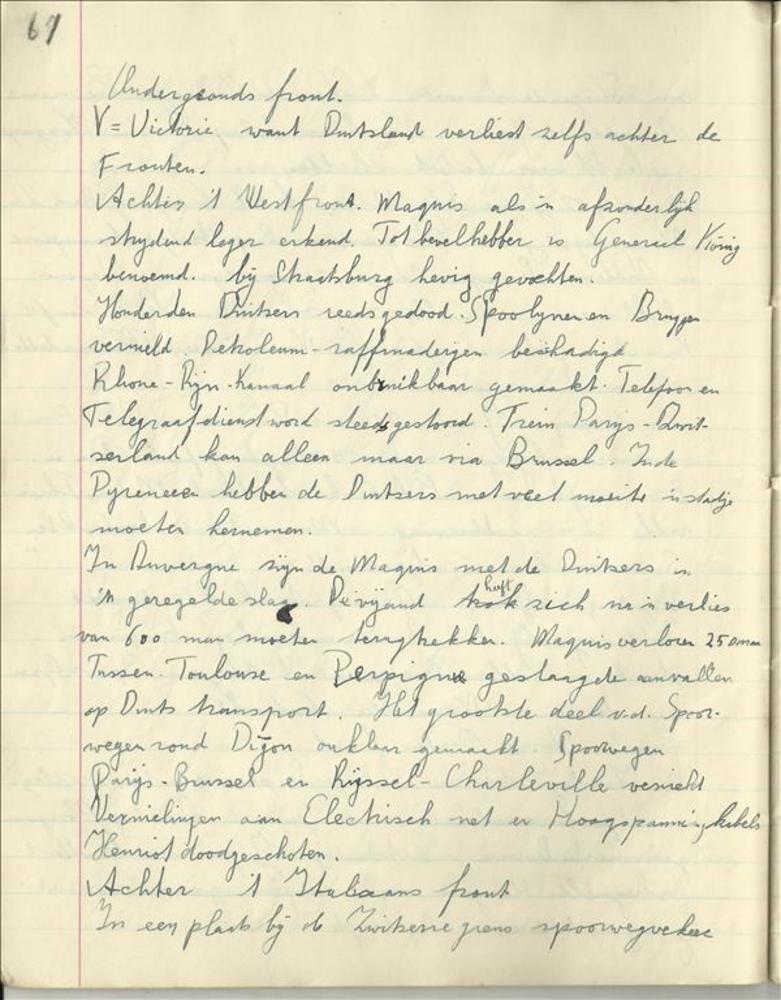 67
Ondergronds front.
V = Victorie want Duitsland verliest zelfs achter de
Fronten.
Achter 't Westfront. Maquis als 'n afzonderlijk
strijdend leger erkend. Tot bevelhebber is Generaal König
benoemd. bij Straatsburg hevig gevochten.
Honderden Duitsers reeds gedood. Spoorlijnen en Bruggen
vernield. Petroleum-raffinaderijen beschadigd
Rhone-Rijn-Kanaal onbruikbaar gemaakt. Telefoon en
Telegraafdienst word steeds gestoord. Trein Parijs-Zwit-
serland kan alleen maar via Brussel. In de
Pyreneeen hebben de Duitsers met veel moeite 'n stadje
moeten hernemen.
In Auvergne zijn de Maquis met de Duitsers in
'n geregelde slag. De vijand heeft zich na 'n verlies
van 600 man moeten terugtrekken. Maquis verloren 250 man
Tussen Toulouse en Perpignan geslaagde aanvallen
op Duits transport. Het grootste deel v.d. Spoor-
wegen rond Dijon onklaar gemaakt. Spoorwegen
Parijs-Brussel en Rijssel-Charleville vernield
Vernielingen aan Electrisch net en Hoogspanningkabels
Henriot doodgeschoten.
Achter 't Italiaans front
In een plaats bij de Zwitserse grens spoorwegverkeer